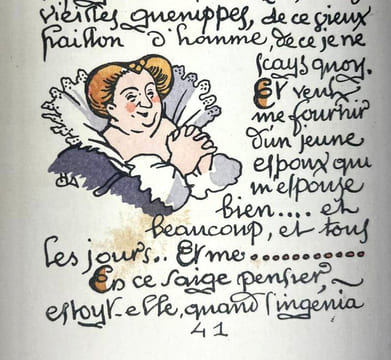 vieilles guenippes, de ce vieux
haillon d'homme, de ce je ne
sçays quoy.
Et veulx
me fournir
d'un jeune
espoux qui
m'espouse
bien.... et
beaucoup, et tous
les jours.. Et me ..........
En ce saige penser,
estoyt-elle, quand s'ingenia
41